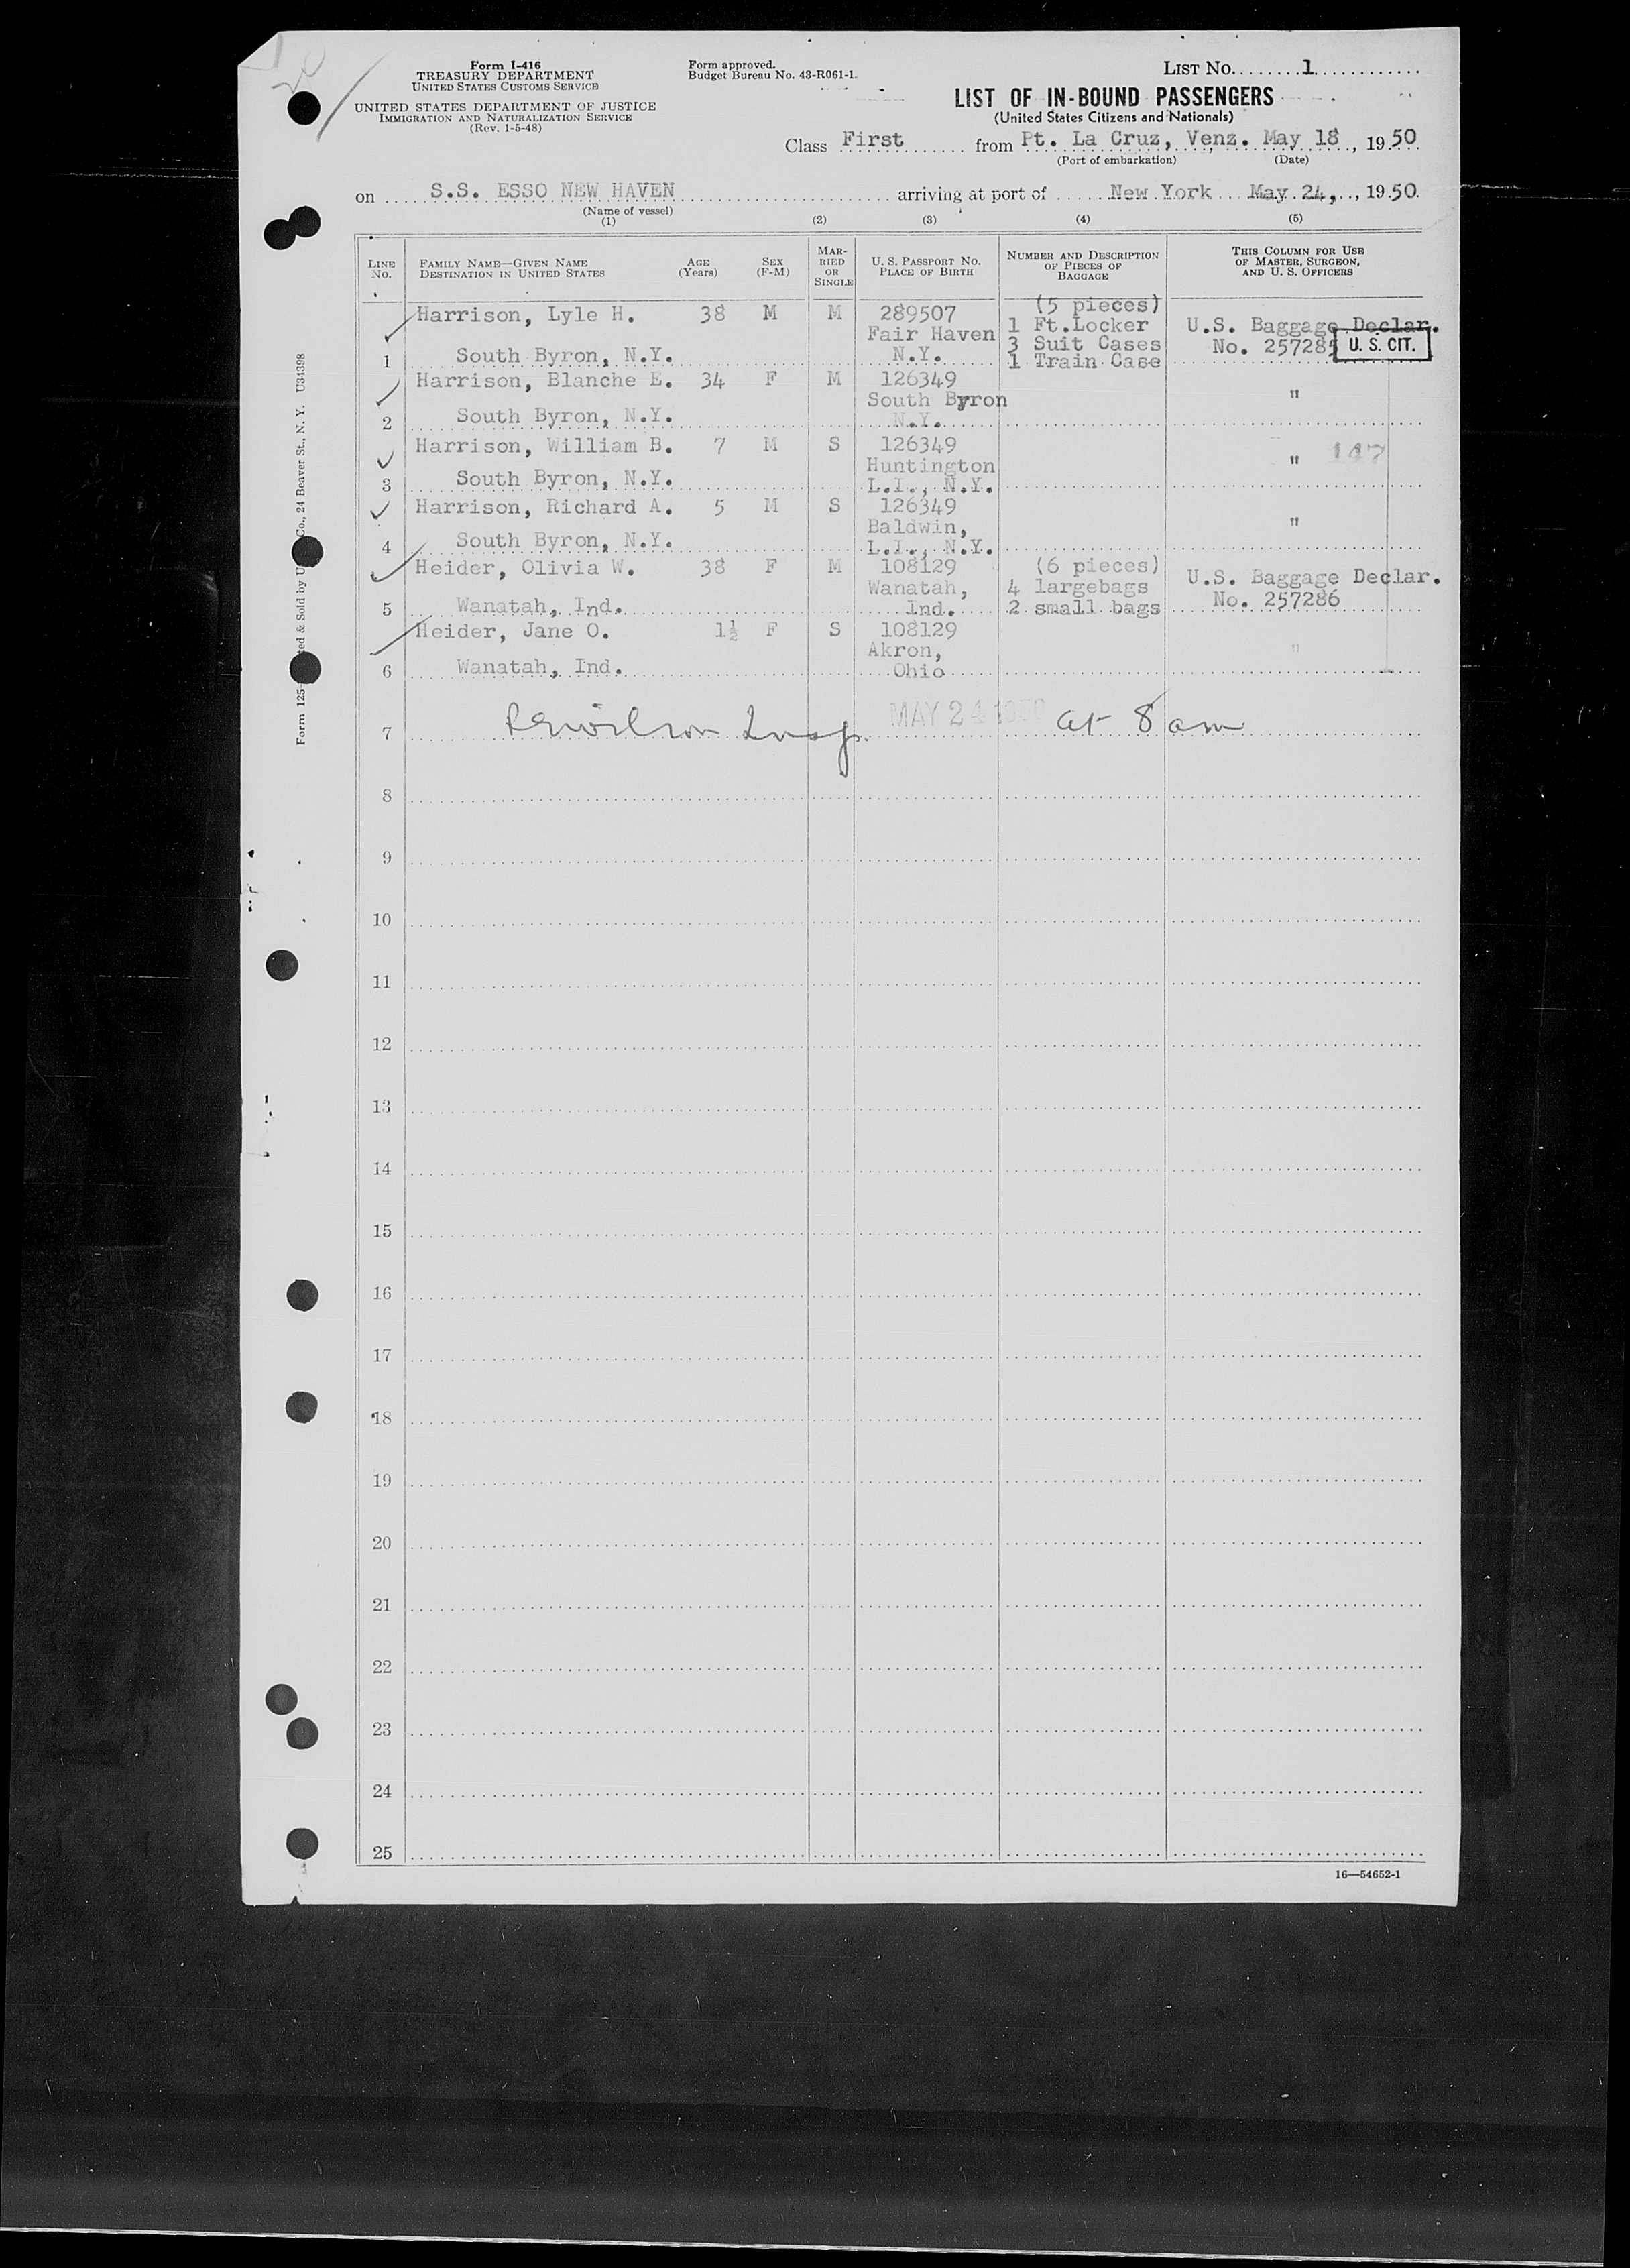 Form I-416
TREASURY DEPARTMENT
UNITED STATES CUSTOMS SERVICE
UNITED STATES DEPARTMENT OF JUSTICE
IMMIGRATION AND NATURALIZATION SERVICE
(Rev. 1-5-48)
Form approved.
Budget Bureau No. 43-R061-1.
LIST NO. 1
LIST OF IN-BOUND PASSENGERS
(United States Citizens and Nationals)
Class First from Pt. La Cruz, Venz. May 18, 1950
(Port of embarkation) (Date)
on S.S. ESSO NEW HAVEN arriving at port of New York May 24, 1950.
(Name of vessel)
(1) (2) (3) (4) (5)
LINE NO. FAMILY NAME—GIVEN NAME DESTINATION IN UNITED STATES AGE (Years) SEX (F-M) MARRIED OR SINGLE U. S. PASSPORT NO. PLACE OF BIRTH NUMBER AND DESCRIPTION OF PIECES OF BAGGAGE THIS COLUMN FOR USE OF MASTER, SURGEON, AND U. S. OFFICERS
Harrison, Lyle H. 38 M M 289507 (5 pieces)
Fair Haven 1 Ft.Locker U.S. Baggage Declar.
1 South Byron, N.Y. N.Y. 3 Suit Cases No. 257285 U. S. CIT.
1 Train Case
Harrison, Blanche E. 34 F M 126349
South Byron "
2 South Byron, N.Y. N.Y.
Harrison, William B. 7 M S 126349
Huntington " 147
3 South Byron, N.Y. L.I., N.Y.
Harrison, Richard A. 5 M S 126349
Baldwin, "
4 South Byron, N.Y. L.I., N.Y.
Heider, Olivia W. 38 F M 108129 (6 pieces)
Wanatah, 4 largebags U.S. Baggage Declar.
5 Wanatah, Ind. Ind. 2 small bags No. 257286
Heider, Jane O. 1½ F S 108129
Akron, "
6 Wanatah, Ind. Ohio
7 Insp. MAY 24 1950 at 8 am
8
9
10
11
12
13
14
15
16
17
18
19
20
21
22
23
24
25
16—54652-1
Form 125- ted & Sold by U Co., 24 Beaver St., N. Y. U34398